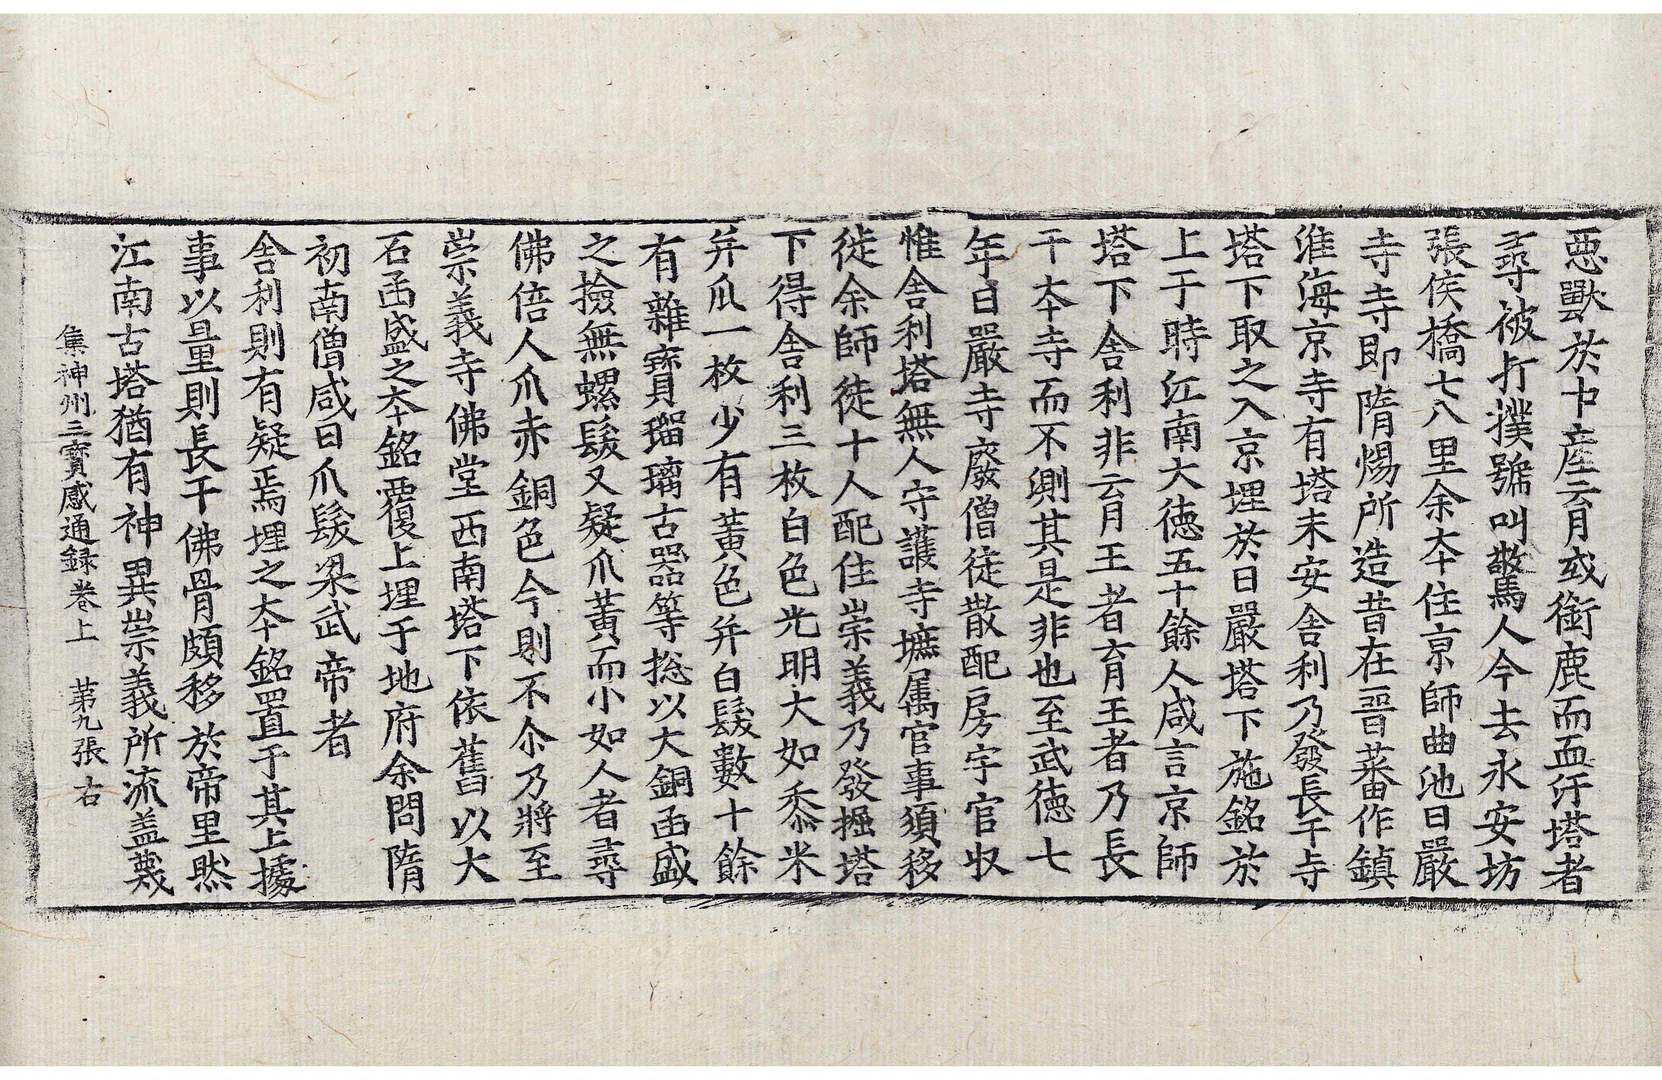 惡獸於中產育或銜鹿而血汙塔者
尋被打撲號叫驚人今去永安坊
張侯橋七八里余本住京師曲池日嚴
寺寺即隋煬所造昔在晉蕃作鎮
淮海京寺有塔未安舍利乃發長干寺
塔下取之入京埋於日嚴塔下施銘於
上于時江南大德五十餘人咸言京師
塔下舍利非育王者育王者乃長
干本寺而不測其是非也至武德七
年日嚴寺廢僧徒散配房宇官收
惟舍利塔無人守護寺壖属官事須移
徙余師徒十人配住崇義乃發掘塔
下得舍利三枚白色光明大如黍米
并爪一枚少有黃色并白髮數十餘
有雜寶瑠璃古器等揔以大銅函盛
之撿無螺髮又疑爪黃而小如人者尋
佛倍人爪赤銅色今則不尒乃將至
崇義寺佛堂西南塔下依舊以大
石函盛之本銘覆上埋于地府余問隋
初南僧咸曰爪髮梁武帝者
舍利則有疑焉埋之本銘置于其上據
事以量則長干佛骨頗移於帝里然
江南古塔猶有神異崇義所流盖蔑
集神州三寶感通録卷上　苐九張　右